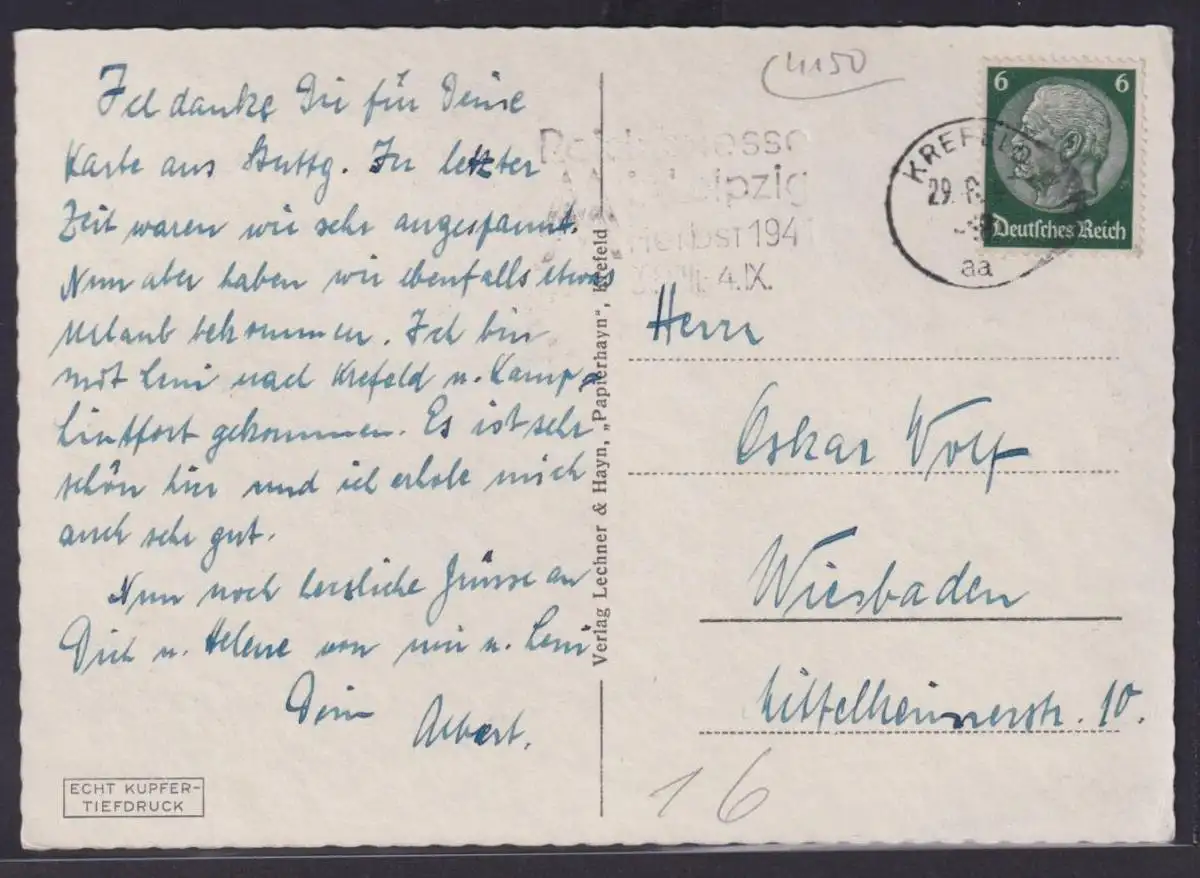 Ich danke Dir für Deine
Karte aus Stuttg. In letzter
Zeit waren wir sehr angespannt.
Nun aber haben wir ebenfalls etwas
Urlaub bekommen. Ich bin
mit Leni nach Krefeld u. Kamp-
Lintfort gekommen. Es ist sehr
schön hier und ich erhole mich
auch sehr gut.
Nun noch herzliche Grüsse an
Dich u. Helene von mir u. Leni
Dein
Albert.
ECHT KUPFER-
TIEFDRUCK
Verlag Lechner & Hayn, „Papierhayn“, Krefeld
4150
Reichsmesse
Leipzig
Herbst 194
4.IX.
KREFELD
29.
aa
6 6
Deutsches Reich
Herrn
Oskar Wolf
Wiesbaden
Mittelheimerstr. 10.
16